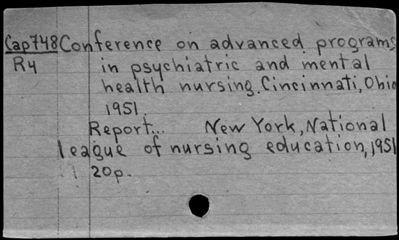 Cap748 Conference on advanced programs
R4 in psychiatric and mental
health nursing. Cincinnati, Ohio
1951.
Report... New York, National
league of nursing education, 1951
20p.